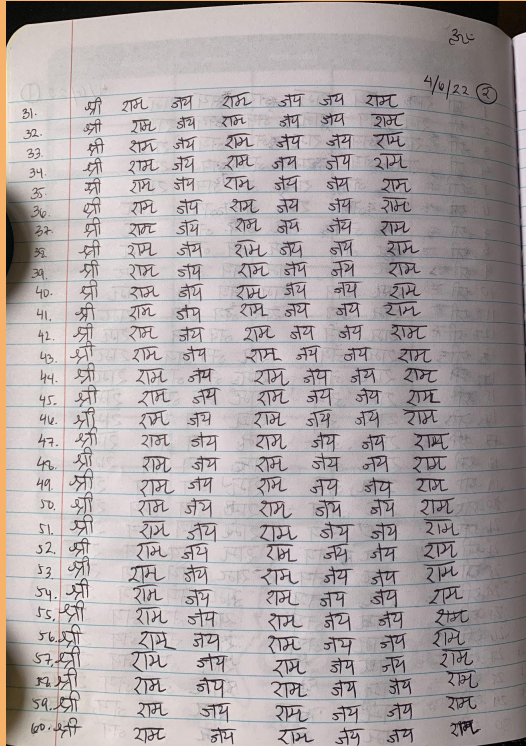 ॐ
4/6/22 २
31. श्री राम जय राम जय जय राम
32. श्री राम जय राम जय जय राम
33. श्री राम जय राम जय जय राम
34. श्री राम जय राम जय जय राम
35. श्री राम जय राम जय जय राम
36. श्री राम जय राम जय जय राम
37. श्री राम जय राम जय जय राम
38. श्री राम जय राम जय जय राम
39. श्री राम जय राम जय जय राम
40. श्री राम जय राम जय जय राम
41. श्री राम जय राम जय जय राम
42. श्री राम जय राम जय जय राम
43. श्री राम जय राम जय जय राम
44. श्री राम जय राम जय जय राम
45. श्री राम जय राम जय जय राम
46. श्री राम जय राम जय जय राम
47. श्री राम जय राम जय जय राम
48. श्री राम जय राम जय जय राम
49. श्री राम जय राम जय जय राम
50. श्री राम जय राम जय जय राम
51. श्री राम जय राम जय जय राम
52. श्री राम जय राम जय जय राम
53. श्री राम जय राम जय जय राम
54. श्री राम जय राम जय जय राम
55. श्री राम जय राम जय जय राम
56. श्री राम जय राम जय जय राम
57. श्री राम जय राम जय जय राम
58. श्री राम जय राम जय जय राम
59. श्री राम जय राम जय जय राम
60. श्री राम जय राम जय जय राम